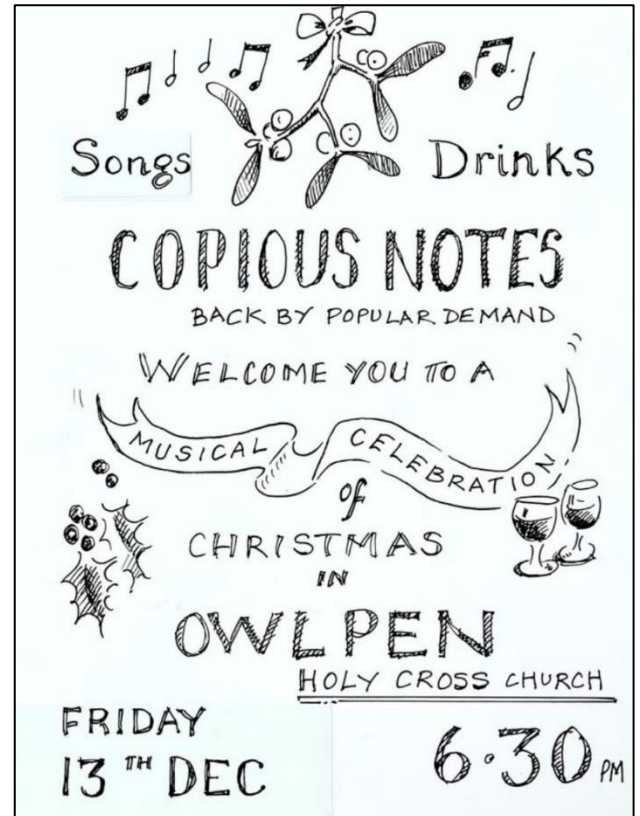 Songs Drinks
COPIOUS NOTES
BACK BY POPULAR DEMAND
WELCOME YOU TO A
MUSICAL CELEBRATION
of
CHRISTMAS
IN
OWLPEN
HOLY CROSS CHURCH
FRIDAY
13TH DEC 6.30 PM